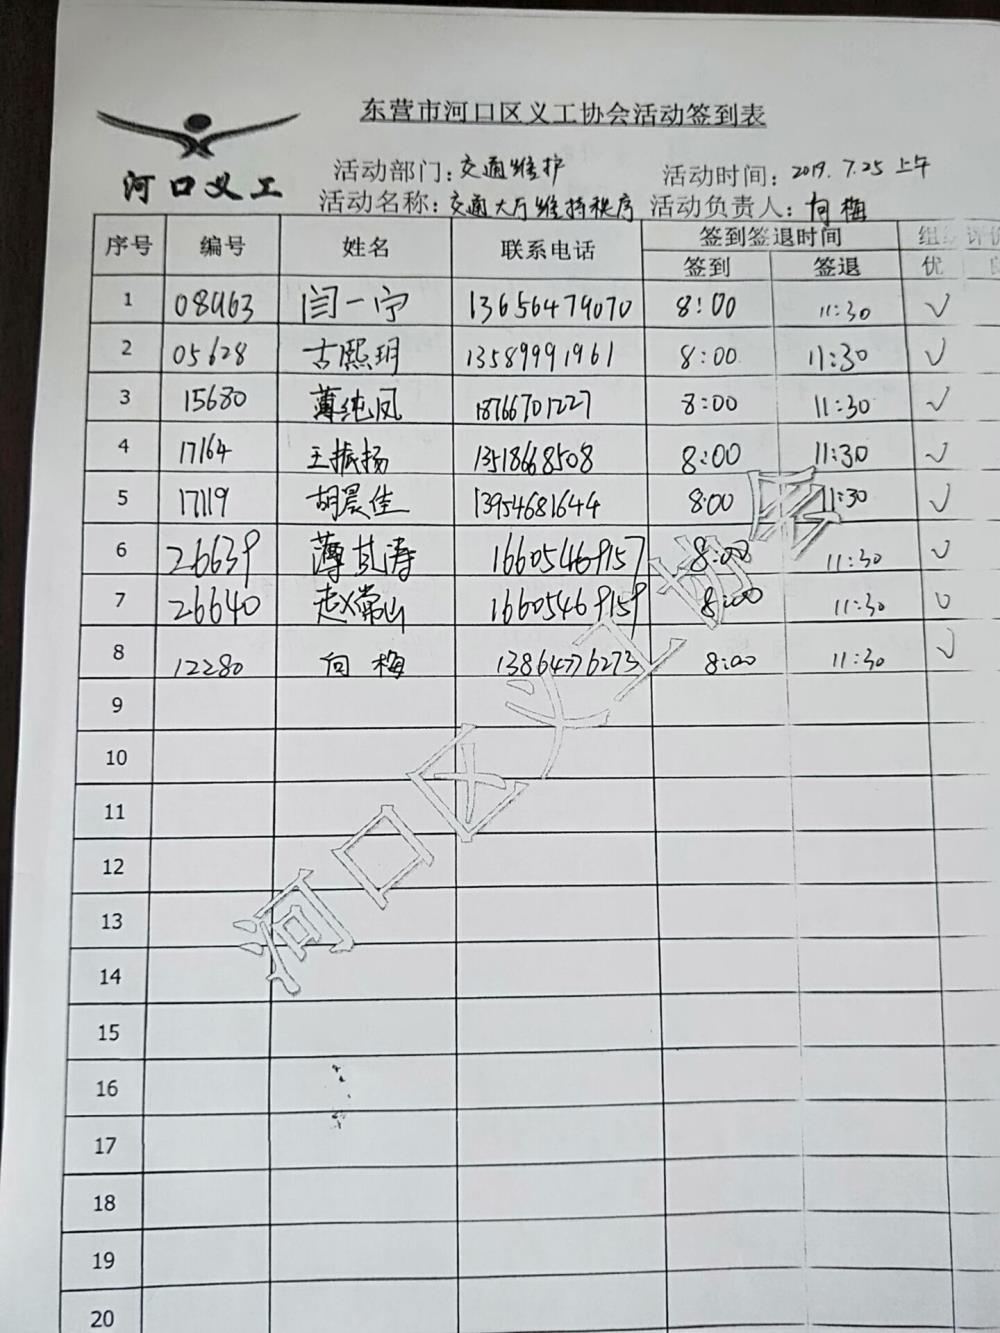 东营市河口区义工协会活动签到表
河口义工
活动部门：交通维护 活动时间：2019.7.25 上午
活动名称：交通大厅维持秩序 活动负责人：向梅
序号 编号 姓名 联系电话 签到签退时间 组织评价
签到 签退 优 良
1 08463 闫一宁 13656479070 8:00 11:30 √
2 05628 古熙玥 13589991961 8:00 11:30 √
3 15680 薄纯凤 18766701227 8:00 11:30 √
4 17164 王振扬 13518668508 8:00 11:30 √
5 17119 胡晨佳 13954681644 8:00 11:30 √
6 26639 薄其涛 16605469157 8:00 11:30 √
7 26640 赵常山 16605469159 8:00 11:30 √
8 12280 向梅 13864776273 8:00 11:30 √
9
10
11
12
13
14
15
16
17
18
19
20
河口区义工协会